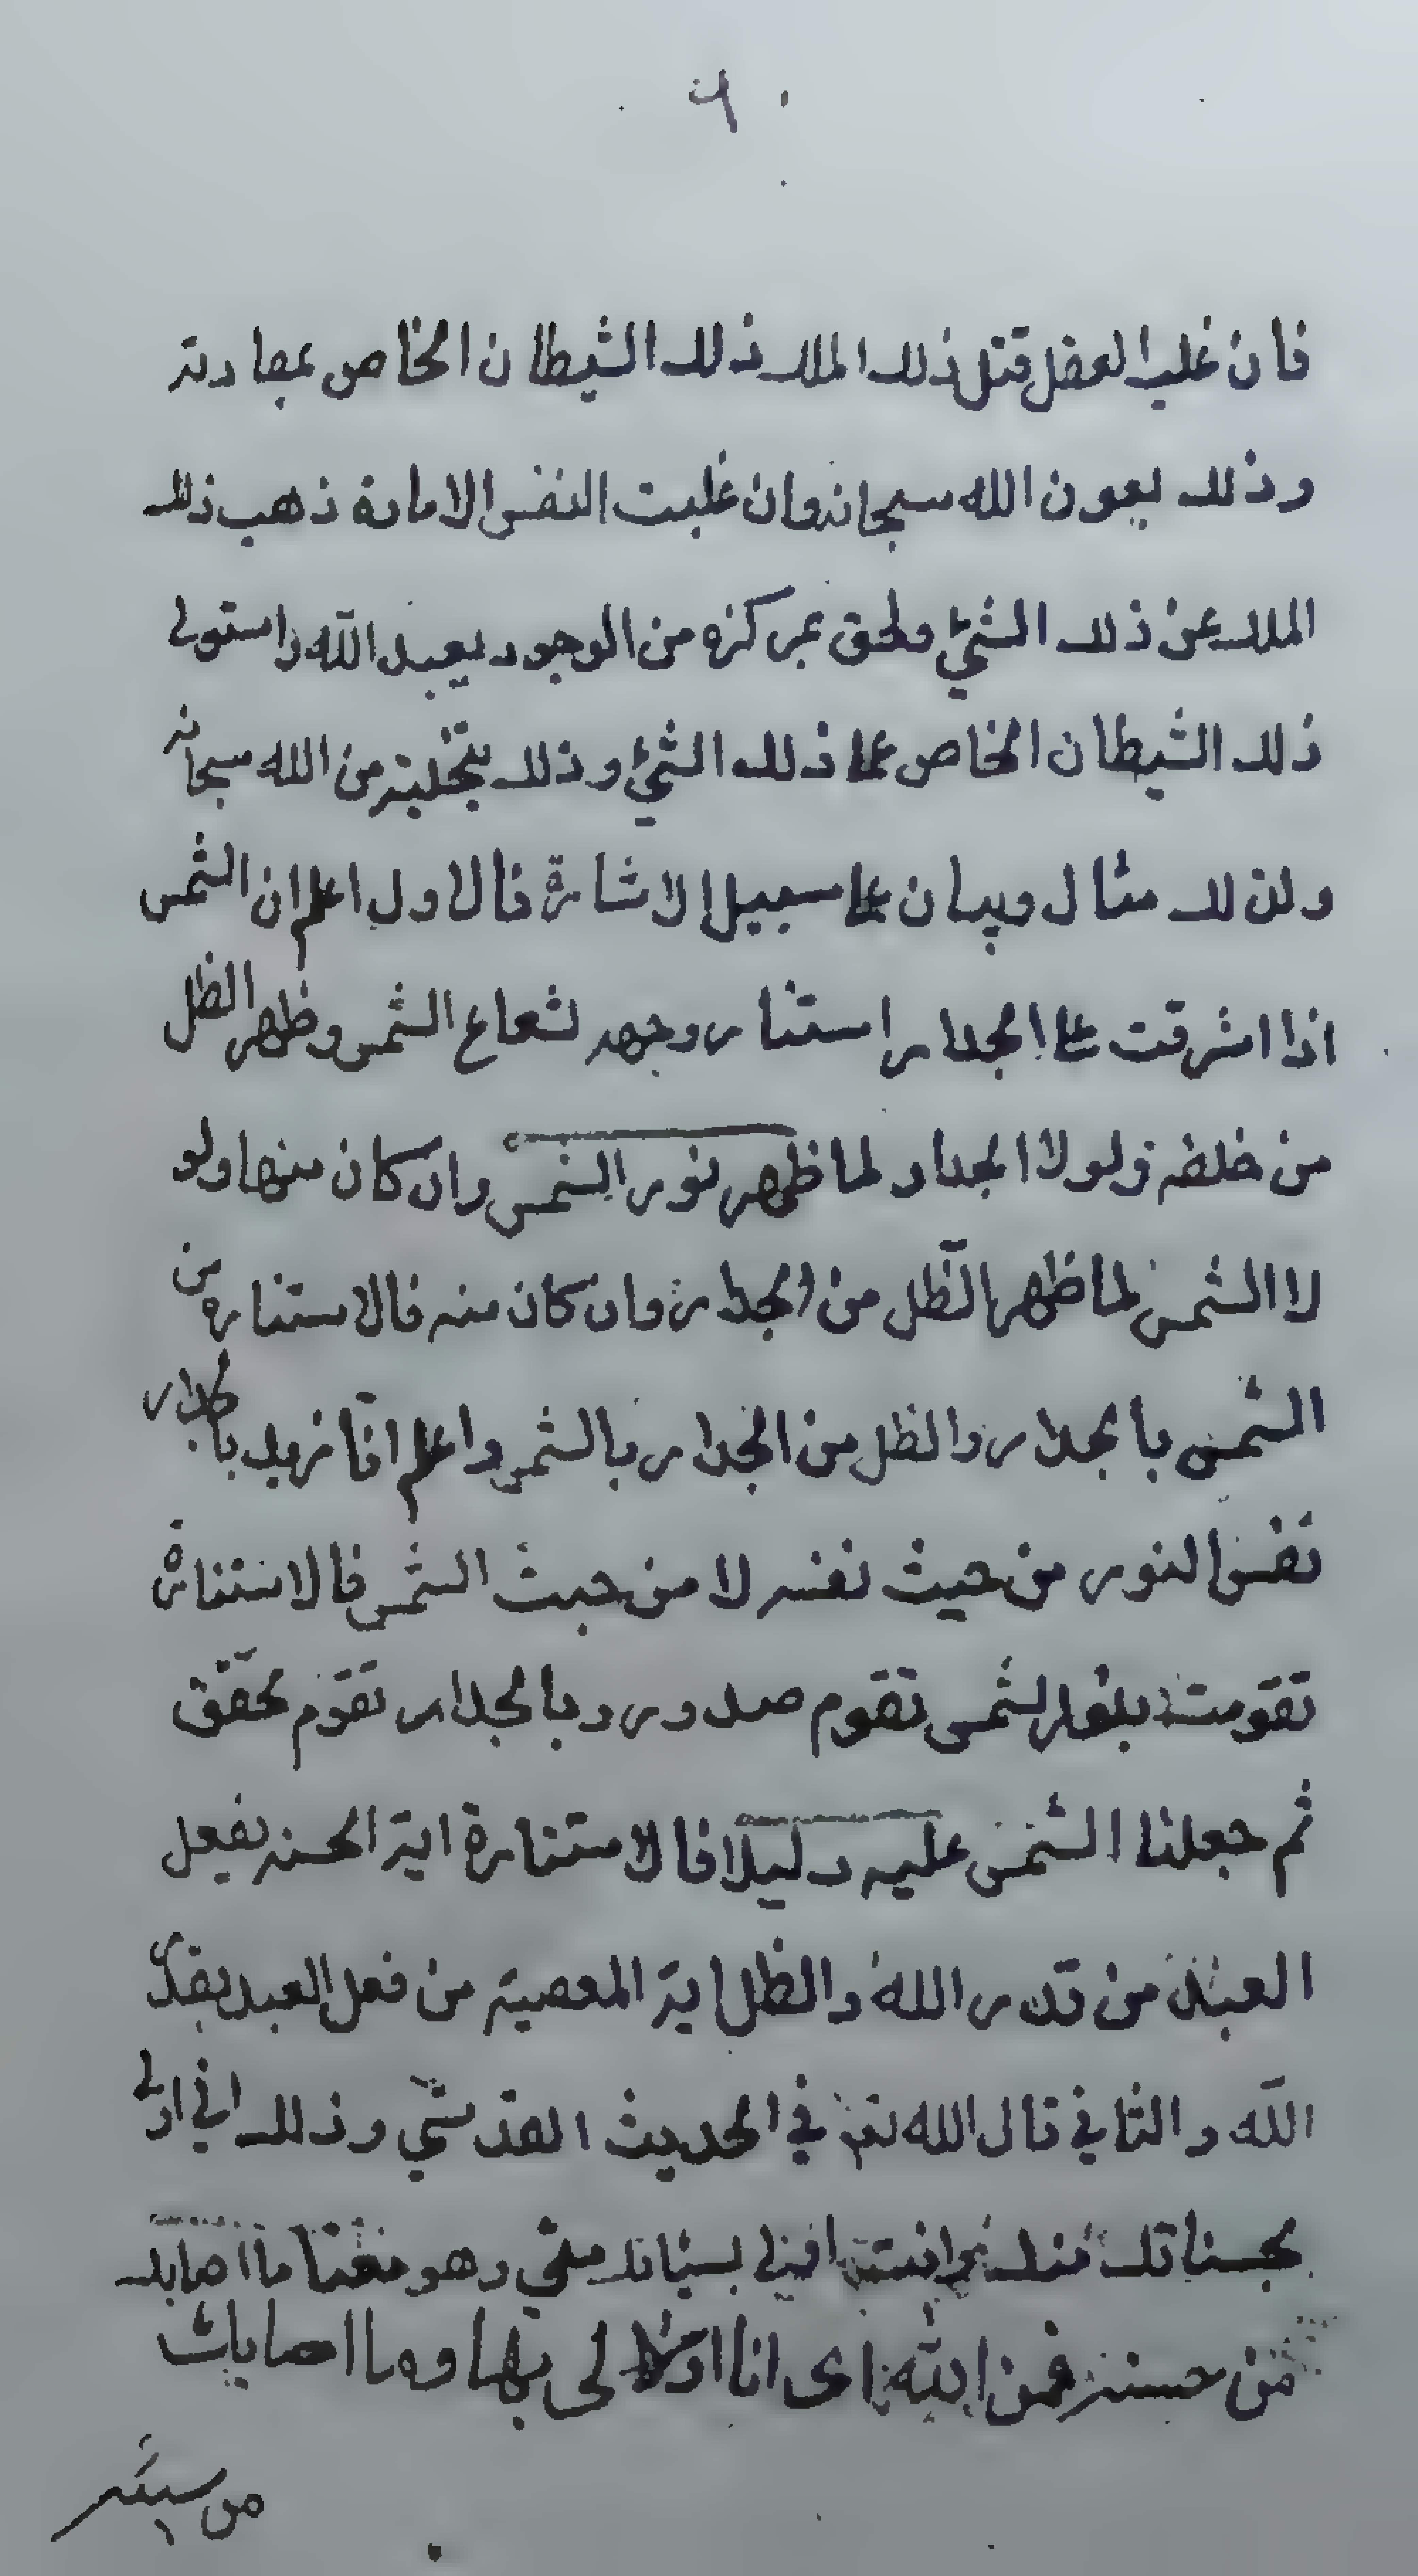 فان غلب العقل قتل ذلك الملك ذلك الشيطان الخاص بمعادته
وذلك بعون الله سبحانه وان غلبت النفس الامارة ذهب ذلك
الملك عن ذلك الشئ ولحق بمركزه من الوجود يعبد الله واستولى
ذلك الشيطان الخاص على ذلك الشئ وذلك بتخلية من الله سبحانه
ولذلك مثال وبيان على سبيل الاشارة فالاول اعلم ان الشمس
اذا اشرقت على الجدار استنار وجهه لشعاع الشمس وظهر الظل
من خلفه ولولا الجدار لما ظهر نور الشمس وان كان منها ولو
لا الشمس لما ظهر الظل من الجدار وان كان منه فالاستنارة من
الشمس بالجدار والظل من الجدار وبالشمس واعلم انا نريد بالجدار
نفس النور من حيث نفسه لا من حيث الشمس فالاستنارة
تقومت بنور الشمس تقوم صدور وبالجدار تقوم تحقق
ثم جعلنا الشمس عليه دليلا فالاستنارة اية الحسنه بفعل
العبد من قدر الله والظل اية المعصية من فعل العبد بقدر
الله والثاني قال الله تع في الحديث القدسي وذلك اني اولى
بحسناتك منك وانت اولى بسيئاتك مني وهو معنى ما اصابك
من حسنة فمن الله اى انا اولى بها وما اصابك
من سيئة